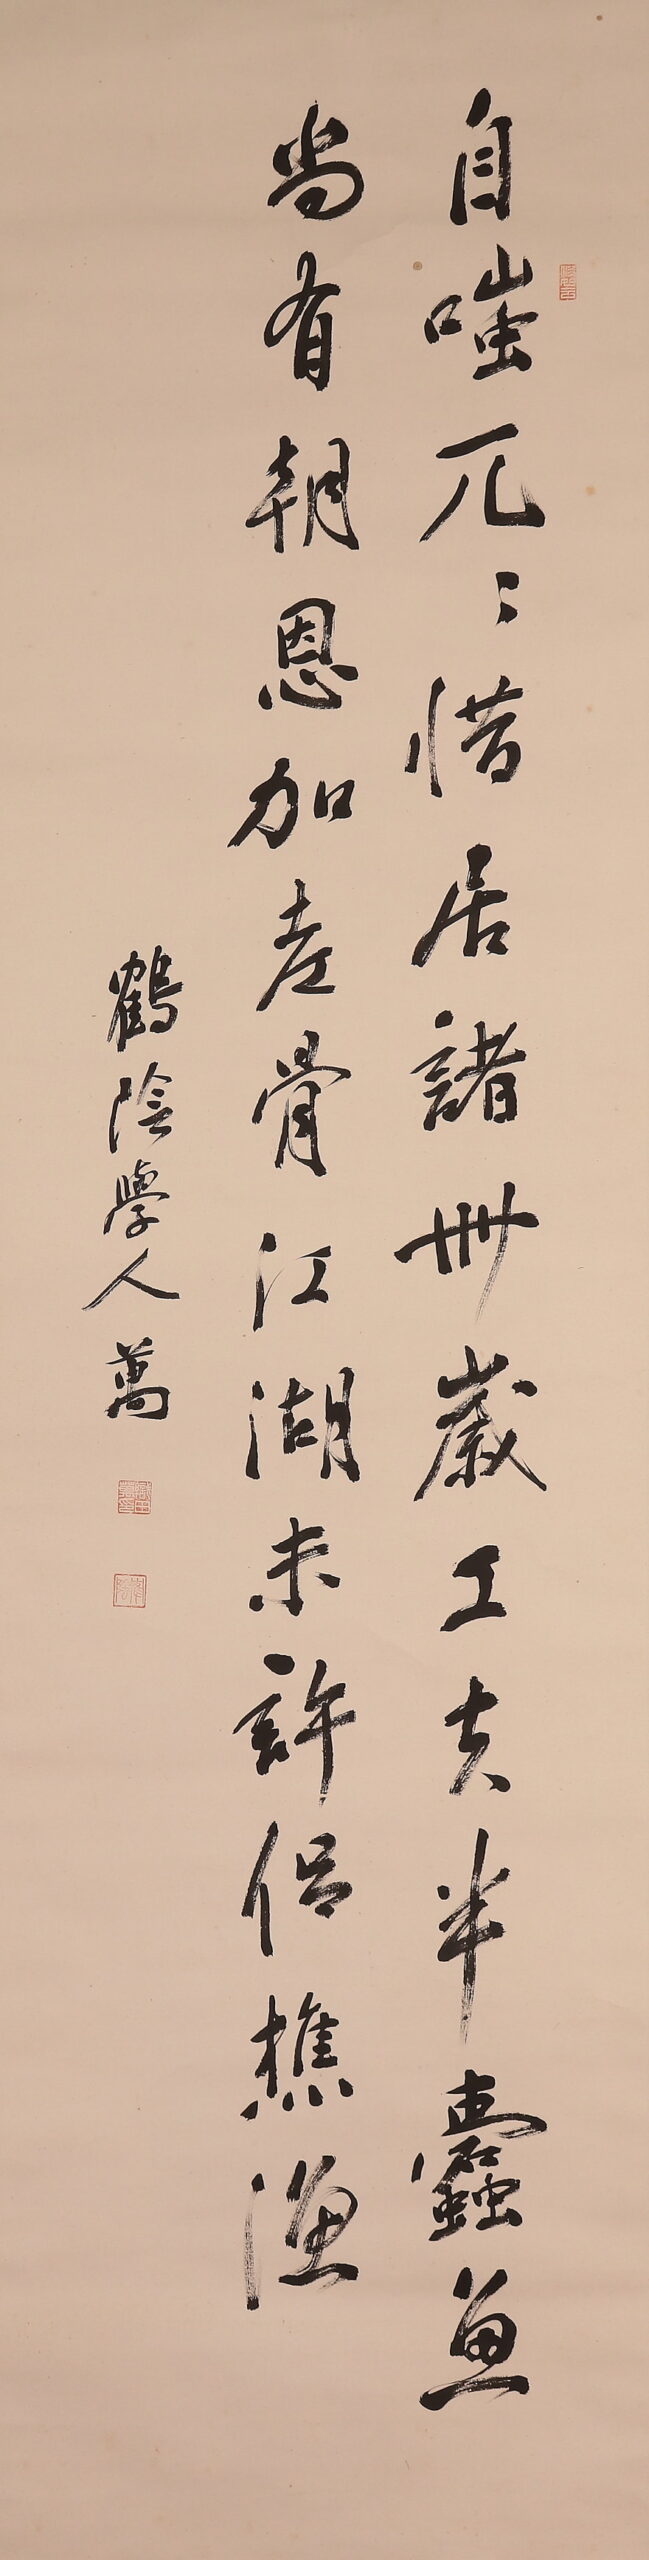 自嗤兀〻惜居諸卅歳工夫半蠹魚
尚有朝恩加老骨江湖未許侶樵漁
鶴陰學人萬